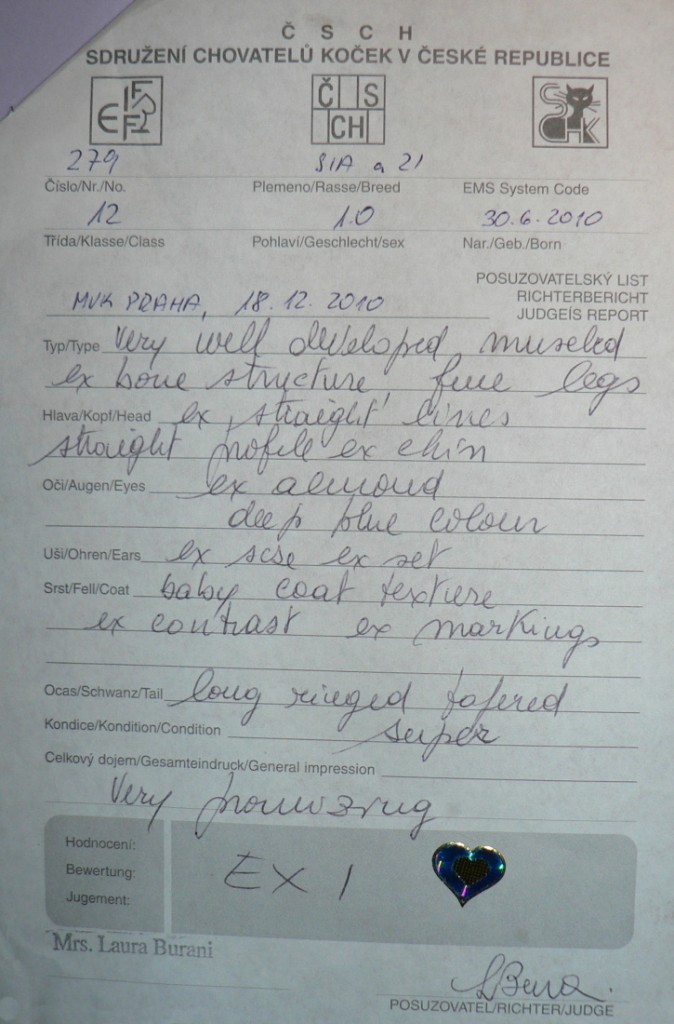 Č S C H
SDRUŽENÍ CHOVATELŮ KOČEK V ČESKÉ REPUBLICE
FIFE
Č S CH
SCHK
279 SIA a 21
Číslo/Nr./No. Plemeno/Rasse/Breed EMS System Code
12 1.0 30.6.2010
Třída/Klasse/Class Pohlaví/Geschlecht/sex Nar./Geb./Born
POSUZOVATELSKÝ LIST
RICHTERBERICHT
JUDGEÍS REPORT
MVK PRAHA, 18.12.2010
Typ/Type Very well developed, muscled
ex bone structure, fine legs
Hlava/Kopf/Head ex, straight lines
straight profile ex chin
Oči/Augen/Eyes ex almond
deep blue colour
Uši/Ohren/Ears ex size ex set
Srst/Fell/Coat baby coat texture
ex contrast ex markings
Ocas/Schwanz/Tail long ringed tapered
Kondice/Kondition/Condition super
Celkový dojem/Gesamteindruck/General impression
Very promising
Hodnocení:
Bewertung: EX 1
Jugement:
Mrs. Laura Burani
POSUZOVATEL/RICHTER/JUDGE